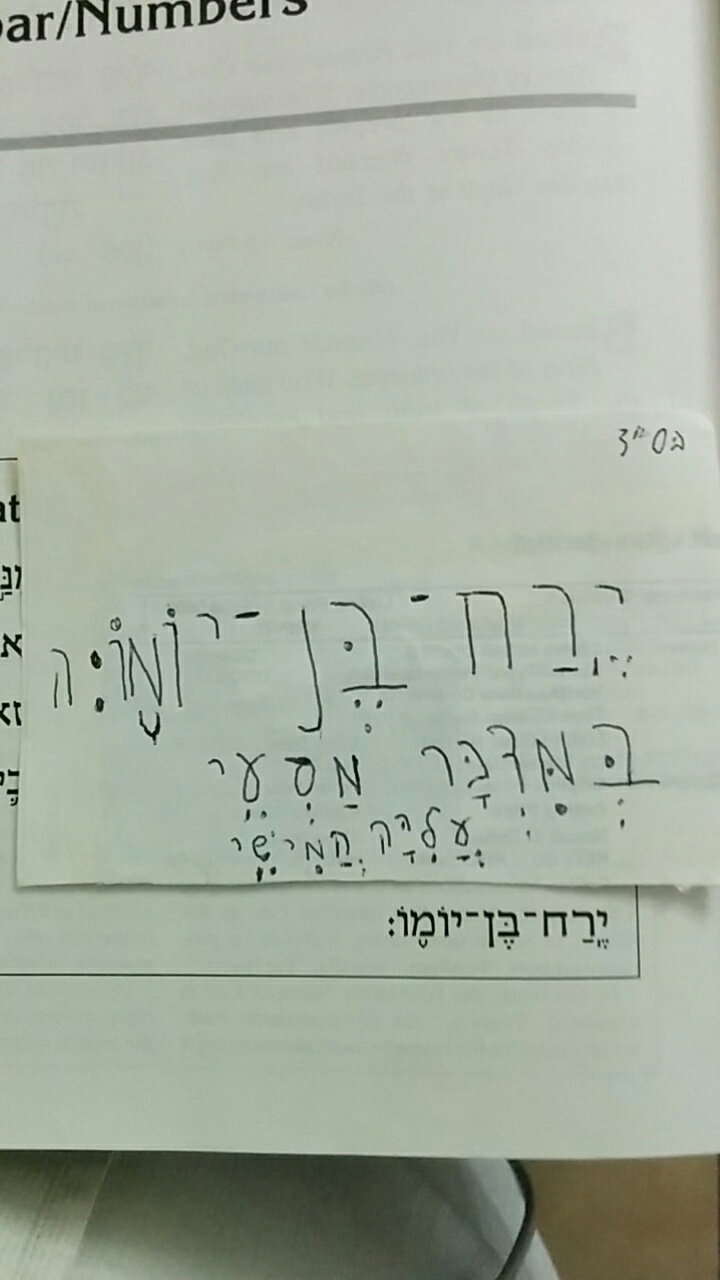 ar/Numbers
בס״ד
יֶרַח־בֶּן־יוֹמוֹ: ה
בְּמִדְבַּר מַסְעֵי
עֲלִיָה חֲמִישִׁי
יֶרַח־בֶּן־יוֹמוֹ: